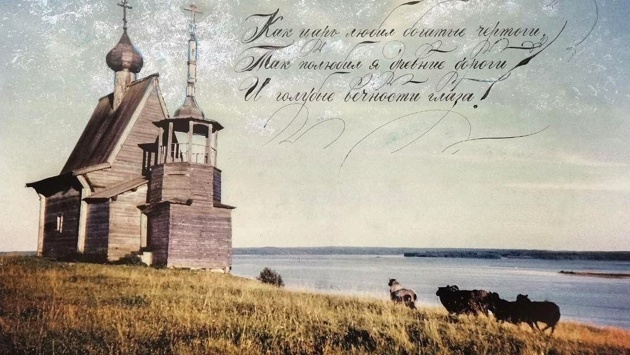 Как царь любил богатые чертоги,
Так полюбил я древние дороги
И голубые вечности глаза!